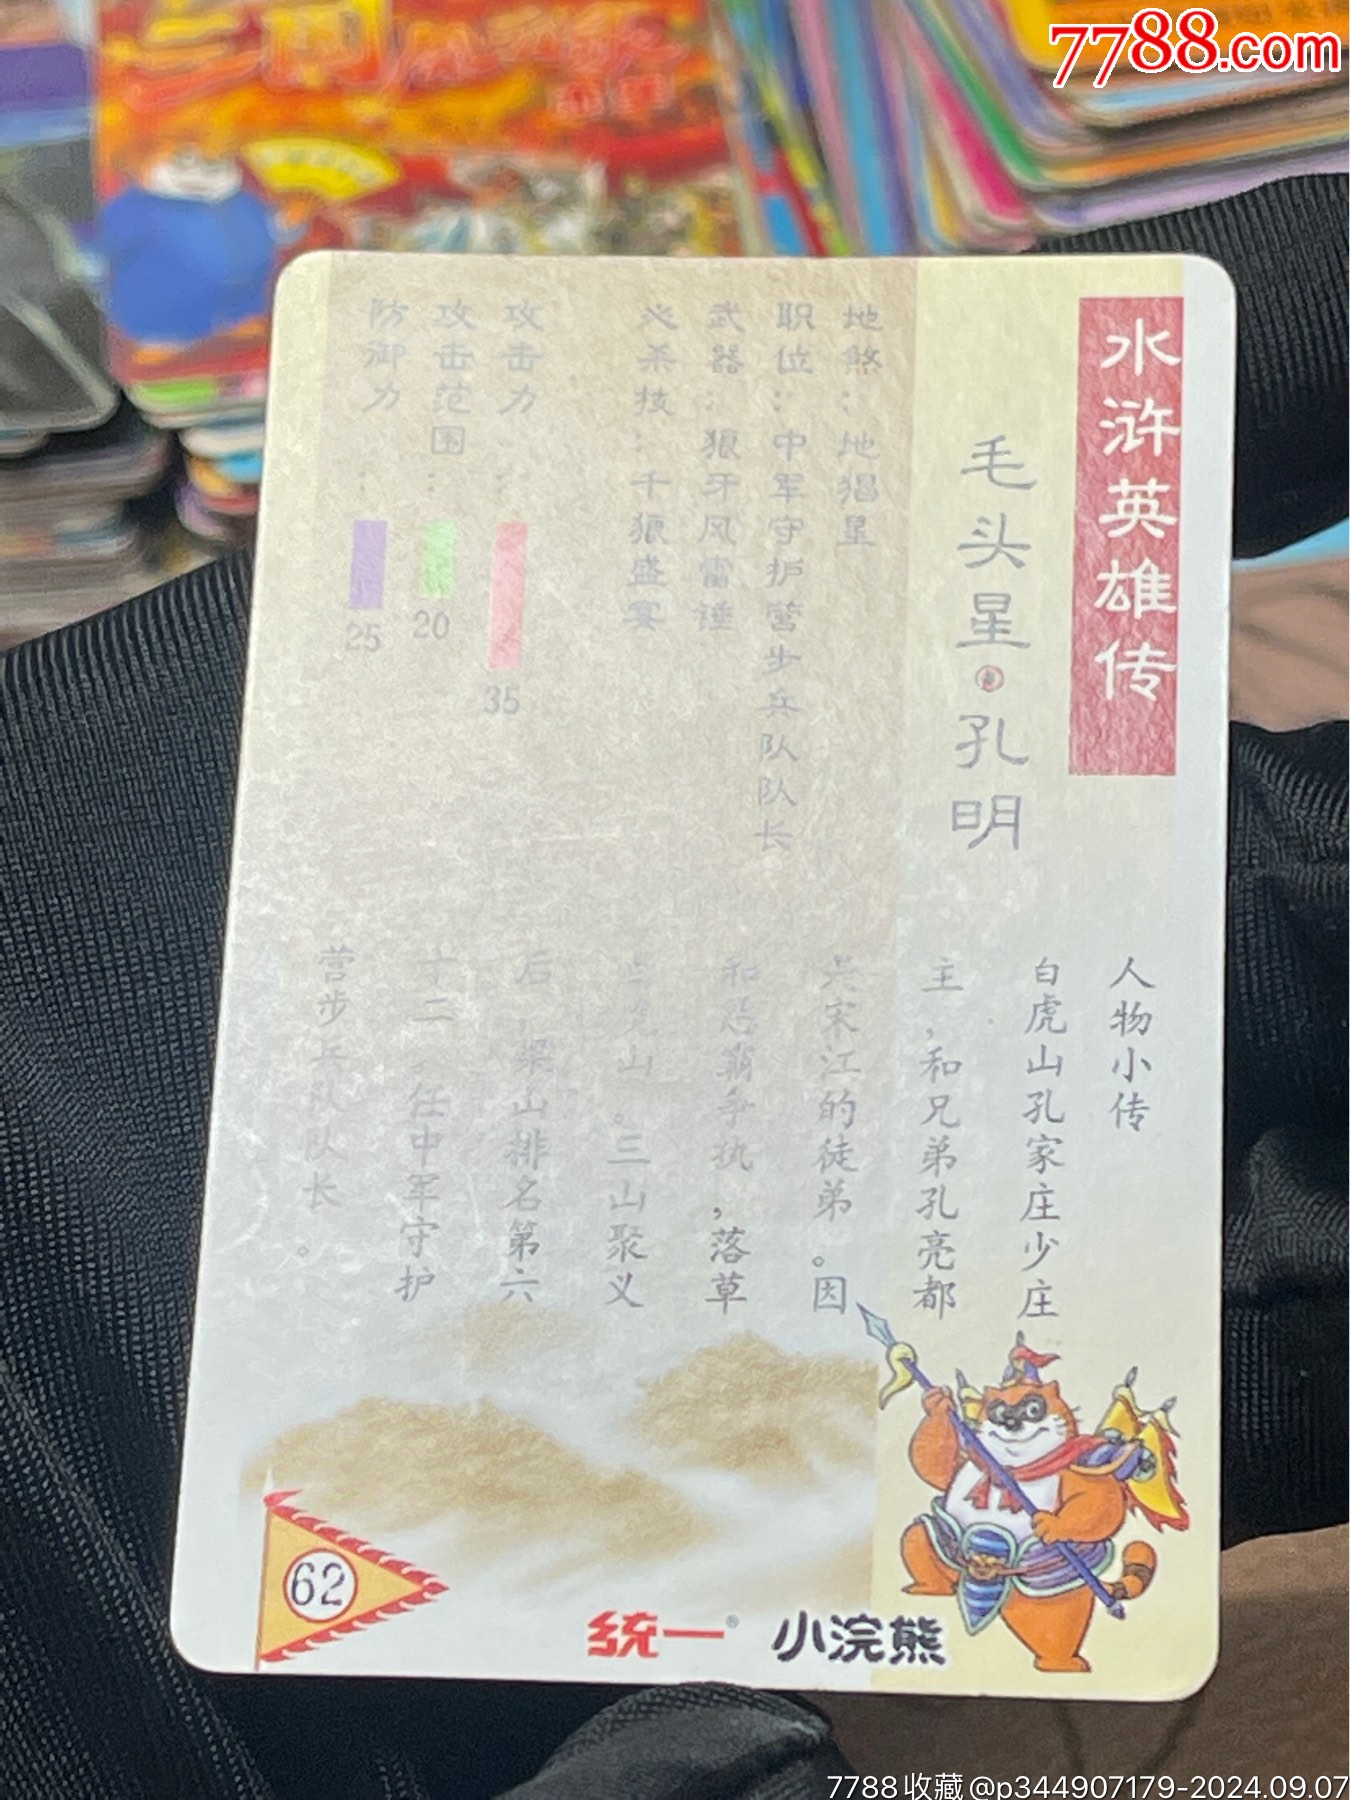 7788.com
水浒英雄传
毛头星·孔明
地煞：地猖星
职位：中军守护营步兵队队长
武器：狼牙风雷锤
必杀技：千狼盛宴
攻击力：
35
攻击范围：
20
防御力：
25
人物小传
白虎山孔家庄少庄
主，和兄弟孔亮都
是宋江的徒弟。因
和恶霸争执，落草
白虎山。三山聚义
后，梁山排名第六
十二，任中军守护
营步兵队队长。
62
统一® 小浣熊
7788收藏@p344907179-2024.09.07